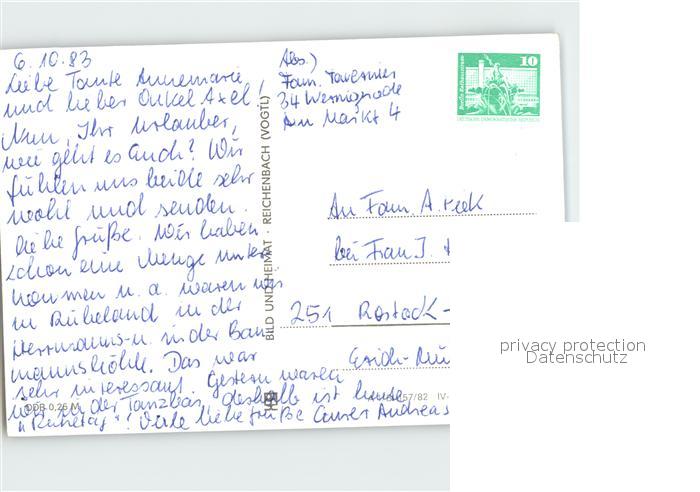 6.10.83
Liebe Tante Annemarie
und lieber Onkel Axel,
Nun, Ihr Urlauber,
wie geht es Euch? Wir
fühlen uns beide sehr
wohl und senden
liebe Grüße. Wir haben
schon eine Menge unter
nommen u. a. waren wir
in Rübeland in der
Hermanns- u. in der Bau
mannshöhle. Das war
sehr interessant. Gestern waren
wir in der Tanzbar, deshalb ist heute
"Ruhetag"! Viele liebe Grüße Andreas
Abs.)
Fam.
34 Wernigerode
Am Markt 4
10
DEUTSCHE DEMOKRATISCHE REPUBLIK
An Fam. A.
bei Frau J.
251 Rostock-
BILD UND HEIMAT · REICHENBACH (VOGTL)
DDR 0,25 M
57/82 IV-
privacy protection
Datenschutz